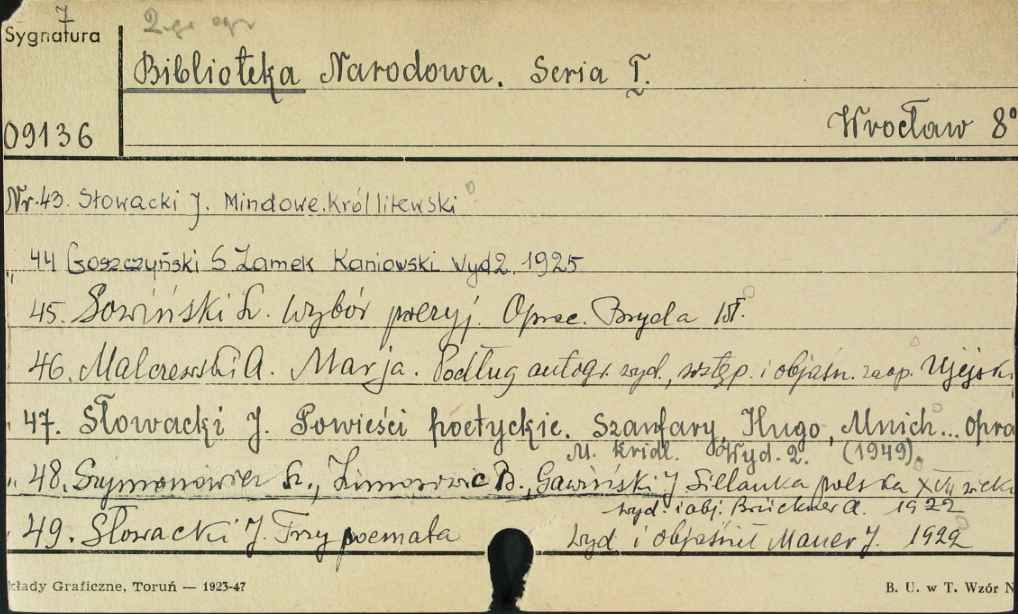 7 2-gi egz
Sygnatura
Biblioteka Narodowa. Seria I.
09136
Wrocław 8°
Nr.43. Słowacki J. Mindowe. Król litewski
" 44 Goszczyński S Zamek Kaniowski Wyd2. 1925
45. Sowiński L. Wybór poezyj. Oprac. Bryda W.
46. Malczewski A. Marja. Podług autogr. wyd., wstęp. i objaśn. zaop. Ujejsk
" 47. Słowacki J. Powieści poetyckie. Szanfary, Hugo, Mnich... opra
M. Kridl. Wyd. 2. (1949).
" 48. Szymonowicz Sz., Zimorowic B., Gawiński J Sielanka polska XVII wieku
wyd. i obj. Brückner A. 1922
49. Słowacki J. Trzy poemata wyd i objaśnił Maner J. 1922
kłady Graficzne, Toruń — 1923-47
B. U. w T. Wzór N